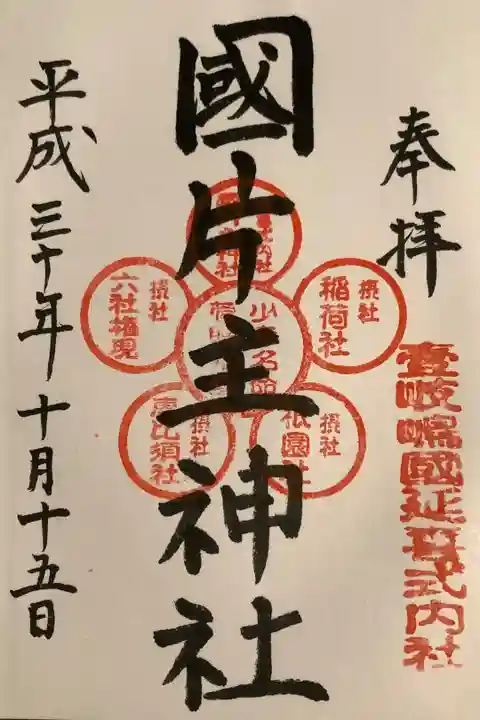 奉拝
壹岐嶋國延喜式内社
國片主神社
式内社
摂社
稲荷社
摂社
六社権現
少名
摂社
祇園社
摂社
恵比須社
平成三十年十月十五日